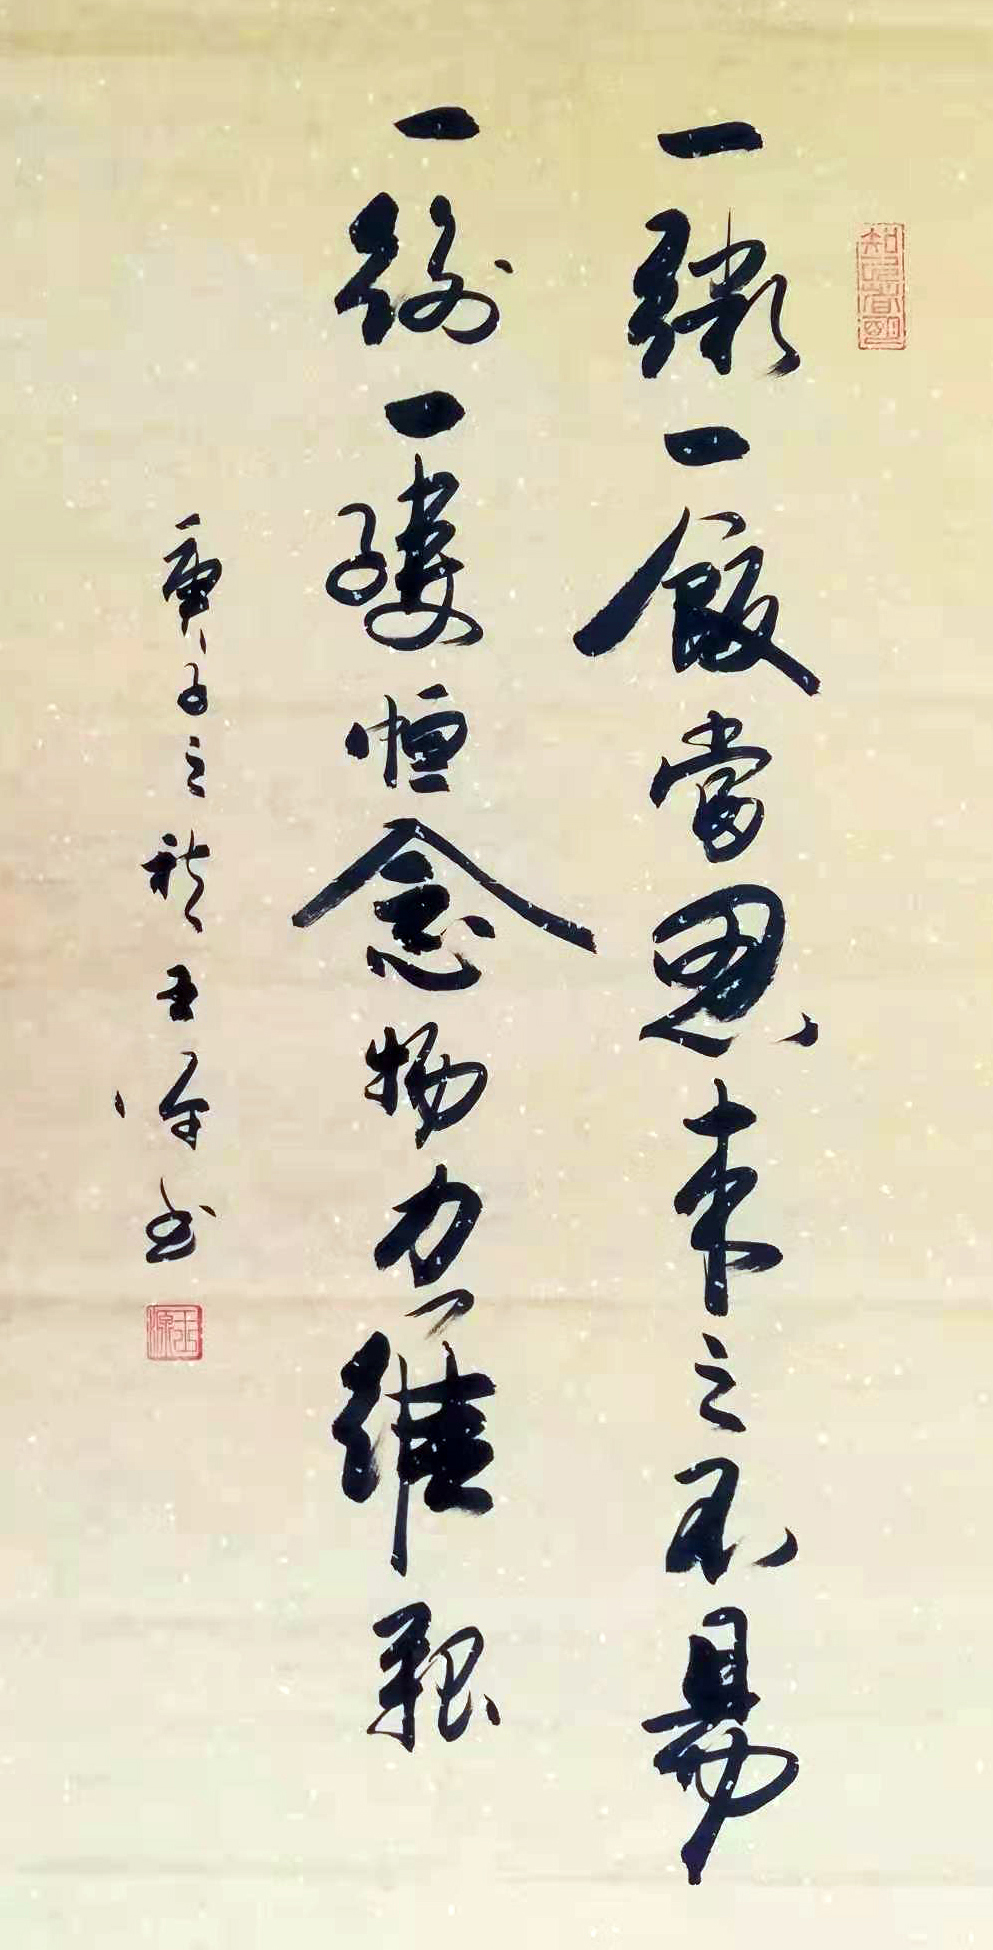 一粥一飯當思来之不易
一絲一縷恒念物力維艱
庚子之秋王源书
王源